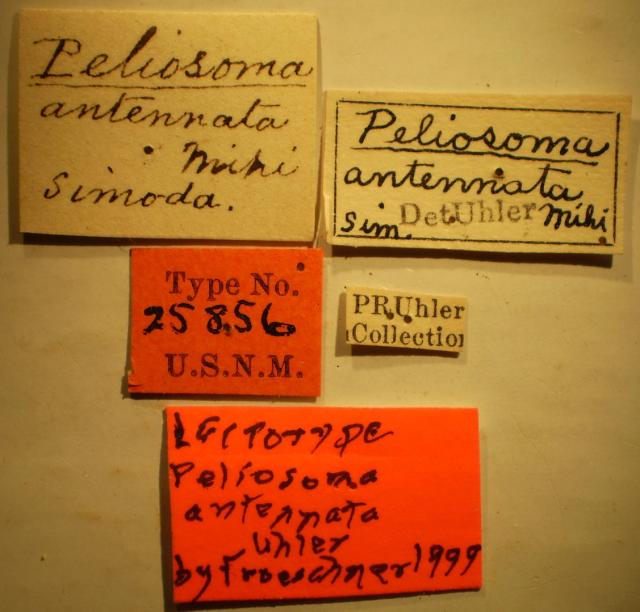 Peliosoma
antennata
Mihi
Simoda.
Peliosoma
antennata
Sim. Det Uhler Mihi
Type No.
25856
U.S.N.M.
PRUhler
Collection
LECTOTYPE
Peliosoma
antennata
Uhler
by Froeschner 1999